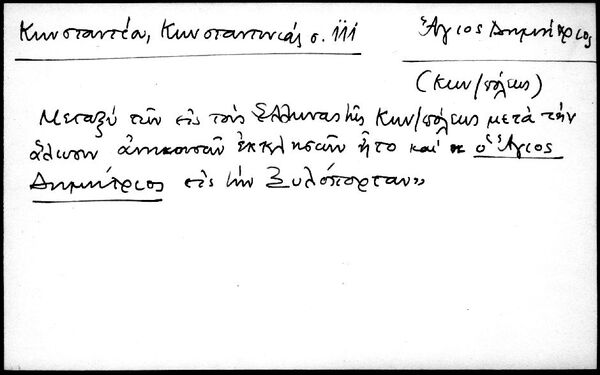 Κωνσταντέα, Κωνσταντινιάς σ. 111
Ἅγιος Δημήτριος
(Κων/πόλεως)
Μεταξύ τῶν εἰς τούς Ἕλληνας τῆς Κων/πόλεως μετά τήν
ἅλωσιν ἀνηκουσῶν ἐκκλησιῶν ἦτο καί ὁ Ἅγιος
Δημήτριος εἰς τήν Ξυλόπορταν»